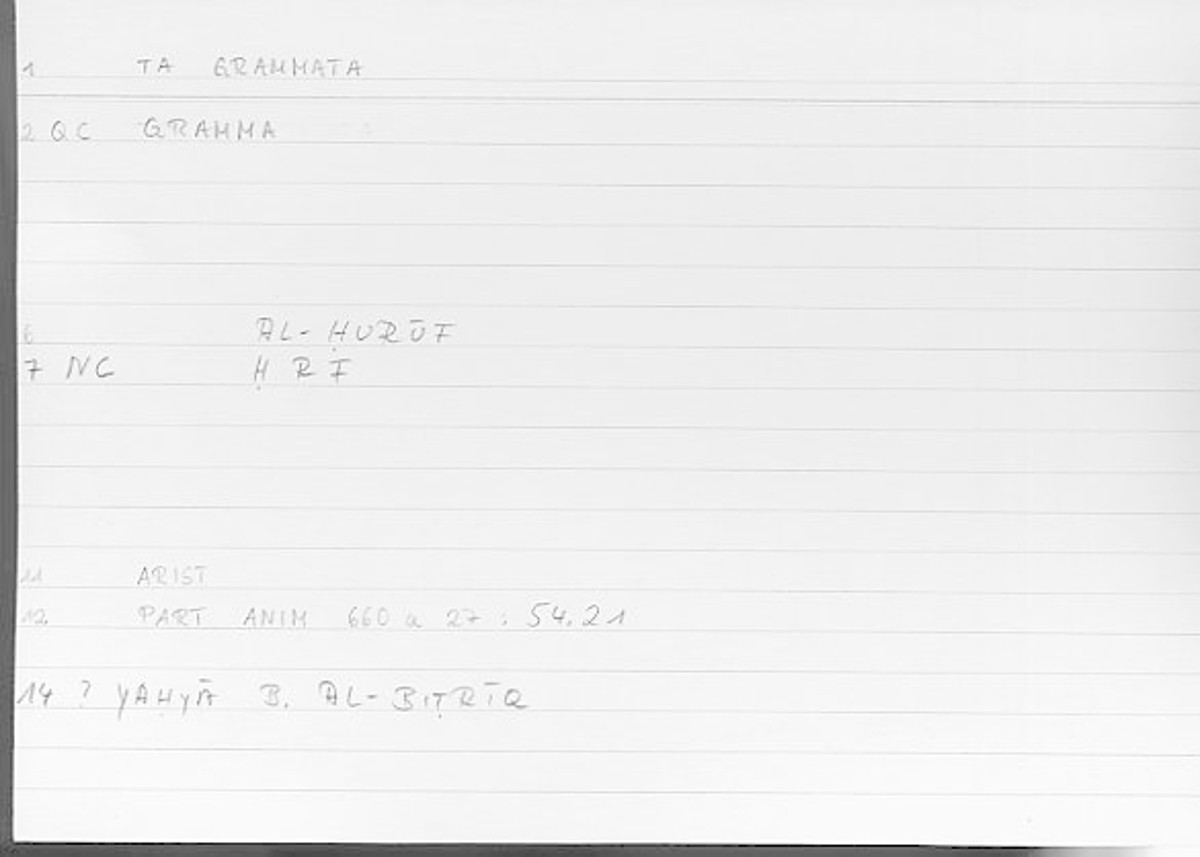 1 TA GRAMMATA
2 QC GRAMMA
6 AL-ḤURŪF
7 NC Ḥ R F
11 ARIST
12 PART ANIM 660 a 27 : 54.21
14 ? YAḤYĀ B. AL-BIṬRĪQ